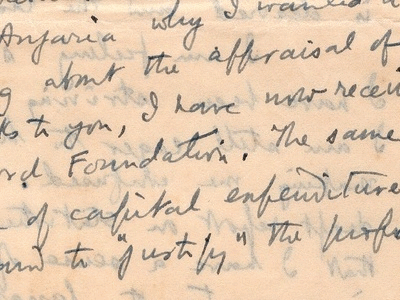 why I wanted a
Angaria
about the appraisal of
to you, I have now recei
ord Foundation. The same
of capital expenditure
ound to "justify" the prof